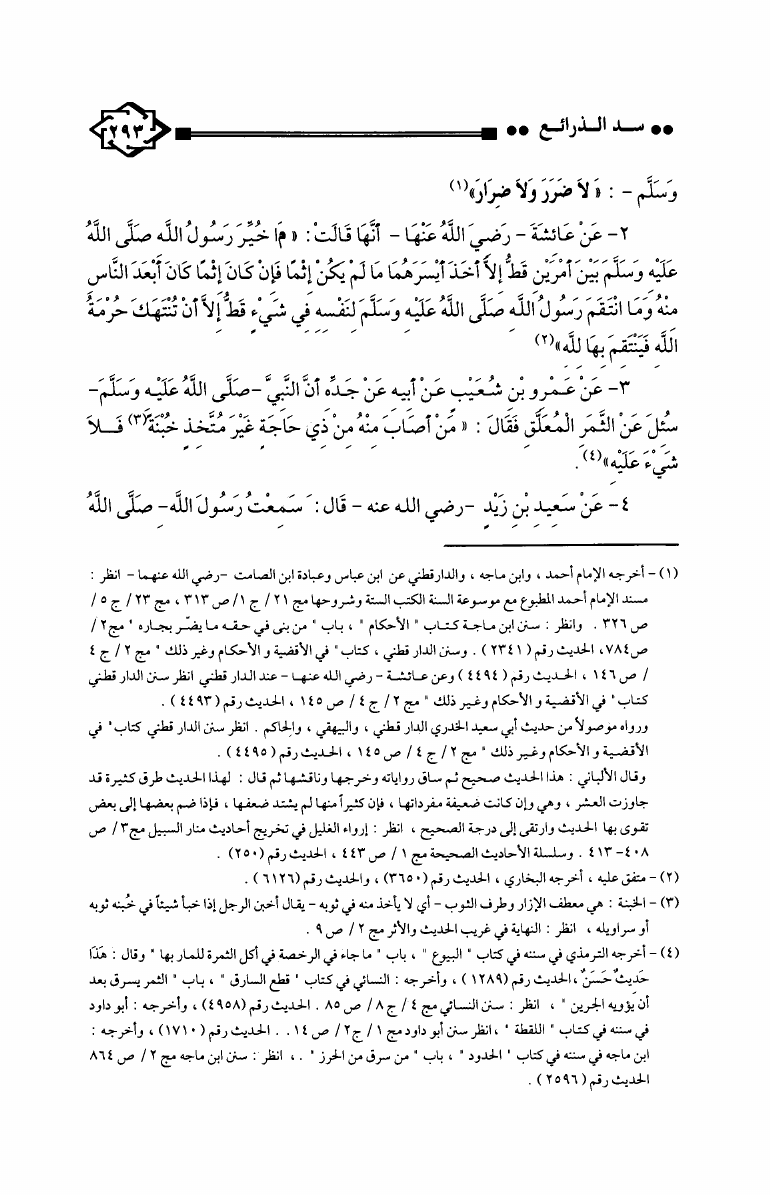 •• سد الذرائع ••
٢٩٣
وَسَلَّم - : « لاَ ضَرَرَ وَلاَ ضِرَارَ»(١)
٢- عَنْ عَائشَةَ - رَضيَ اللَّهُ عَنْهَا - أَنَّهَا قَالَتْ: « مَا خُيِّرَ رَسُولُ اللَّه صَلَّى اللَّهُ
عَلَيْه وَسَلَّمَ بَيْنَ أَمْرَيْنِ قَطُّ إلاَّ أَخَذَ أَيْسَرَهُمَا مَا لَمْ يَكُنْ إثْمًا فَإنْ كَانَ إثْمًا كَانَ أَبْعَدَ النَّاسِ
منْهُ وَمَا انْتَقَمَ رَسُولُ اللَّه صَلَّى اللَّهُ عَلَيْه وَسَلَّمَ لنَفْسه في شَيْءٍ قَطُّ إلاَّ أَنْ تُنْتَهَكَ حُرْمَةُ
اللَّه فَيَنْتَقمَ بهَا للَّه»(٢)
٣- عَنْ عَمْرو بْنِ شُعَيْبٍ عَنْ أَبيه عَنْ جَدِّه أَنَّ النَّبيَّ -صَلَّى اللَّهُ عَلَيْه وَسَلَّمَ-
سُئلَ عَنْ الثَّمَرِ الْمُعَلَّقِ فَقَالَ : « مَنْ أَصَابَ منْهُ منْ ذي حَاجَةٍ غَيْرَ مُتَّخذٍ خُبْنَةً(٣) فَلاَ
شَيْءَ عَلَيْه»(٤).
٤- عَنْ سَعيدِ بْنِ زَيْدٍ -رضي الله عنه - قَال : سَمعْتُ رَسُولَ اللَّه- صَلَّى اللَّهُ
(١) - أخرجه الإمام أحمد ، وابن ماجه ، والدارقطني عن ابن عباس وعبادة ابن الصامت -رضي الله عنهما - انظر :
مسند الإمام أحمد المطبوع مع موسوعة السنة الكتب الستة وشروحها مج ٢١ / ج ١/ ص ٣١٣ ، مج ٢٣ / ج ٥ /
ص ٣٢٦ . وانظر : سنن ابن ماجة كتاب " الأحكام " ، باب " من بنى في حقه ما يضر بجاره " مج٢ /
ص٧٨٤، الحديث رقم ( ٢٣٤١ ) . وسنن الدار قطني ، كتاب" في الأقضية و الأحكام وغير ذلك " مج ٢ / ج ٤
/ ص ١٤٦ ، الحديث رقم ( ٤٤٩٤ ) وعن عائشة - رضي الله عنها - عند الدار قطني انظر سنن الدار قطني
كتاب" في الأقضية و الأحكام وغير ذلك " مج ٢ / ج ٤ / ص ١٤٥ ، الحديث رقم ( ٤٤٩٣ ) .
ورواه موصولاً من حديث أبي سعيد الخدري الدار قطني ، والبيهقي ، والحاكم . انظر سنن الدار قطني كتاب" في
الأقضية و الأحكام وغير ذلك " مج ٢ / ج ٤ / ص ١٤٥ ، الحديث رقم ( ٤٤٩٥ ) .
وقال الألباني : هذا الحديث صحيح ثم ساق رواياته وخرجها وناقشها ثم قال : لهذا الحديث طرق كثيرة قد
جاوزت العشر ، وهي وإن كانت ضعيفة مفرداتها ، فإن كثيراً منها لم يشتد ضعفها ، فإذا ضم بعضها إلى بعض
تقوى بها الحديث وارتقى إلى درجة الصحيح ، انظر : إرواء الغليل في تخريج أحاديث منار السبيل مج٣ / ص
٤٠٨- ٤١٣ . وسلسلة الأحاديث الصحيحة مج ١ / ص ٤٤٣ ، الحديث رقم (٢٥٠) .
(٢) - متفق عليه ، أخرجه البخاري ، الحديث رقم (٣٦٥٠) ، والحديث رقم (٦١٢٦ ) .
(٣) - الخبنة : هي معطف الإزار وطرف الثوب - أي لا يأخذ منه في ثوبه - يقال أخبن الرجل إذا خبأ شيئاً في خُبنه ثوبه
أو سراويله ، انظر : النهاية في غريب الحديث والأثر مج ٢ / ص ٩ .
(٤) - أخرجه الترمذي في سننه في كتاب " البيوع " ، باب " ما جاء في الرخصة في أكل الثمرة للمار بها " وقال : هَذَا
حَديثٌ حَسَنٌ ،الحديث رقم (١٢٨٩ ) ، وأخرجه : النسائي في كتاب " قطع السارق " ، باب " الثمر يسرق بعد
أن يؤويه الجرين " ، انظر : سنن النسائي مج ٤ / ج ٨ / ص ٨٥ . الحديث رقم (٤٩٥٨) ، وأخرجه : أبو داود
في سننه في كتاب " اللقطة " ،انظر سنن أبو داود مج ١ / ج٢ / ص ١٤ . . الحديث رقم (١٧١٠) ، وأخرجه :
ابن ماجه في سننه في كتاب " الحدود " ، باب " من سرق من الحرز " . ، انظر : سنن ابن ماجه مج ٢ / ص ٨٦٤
الحديث رقم (٢٥٩٦ ) .